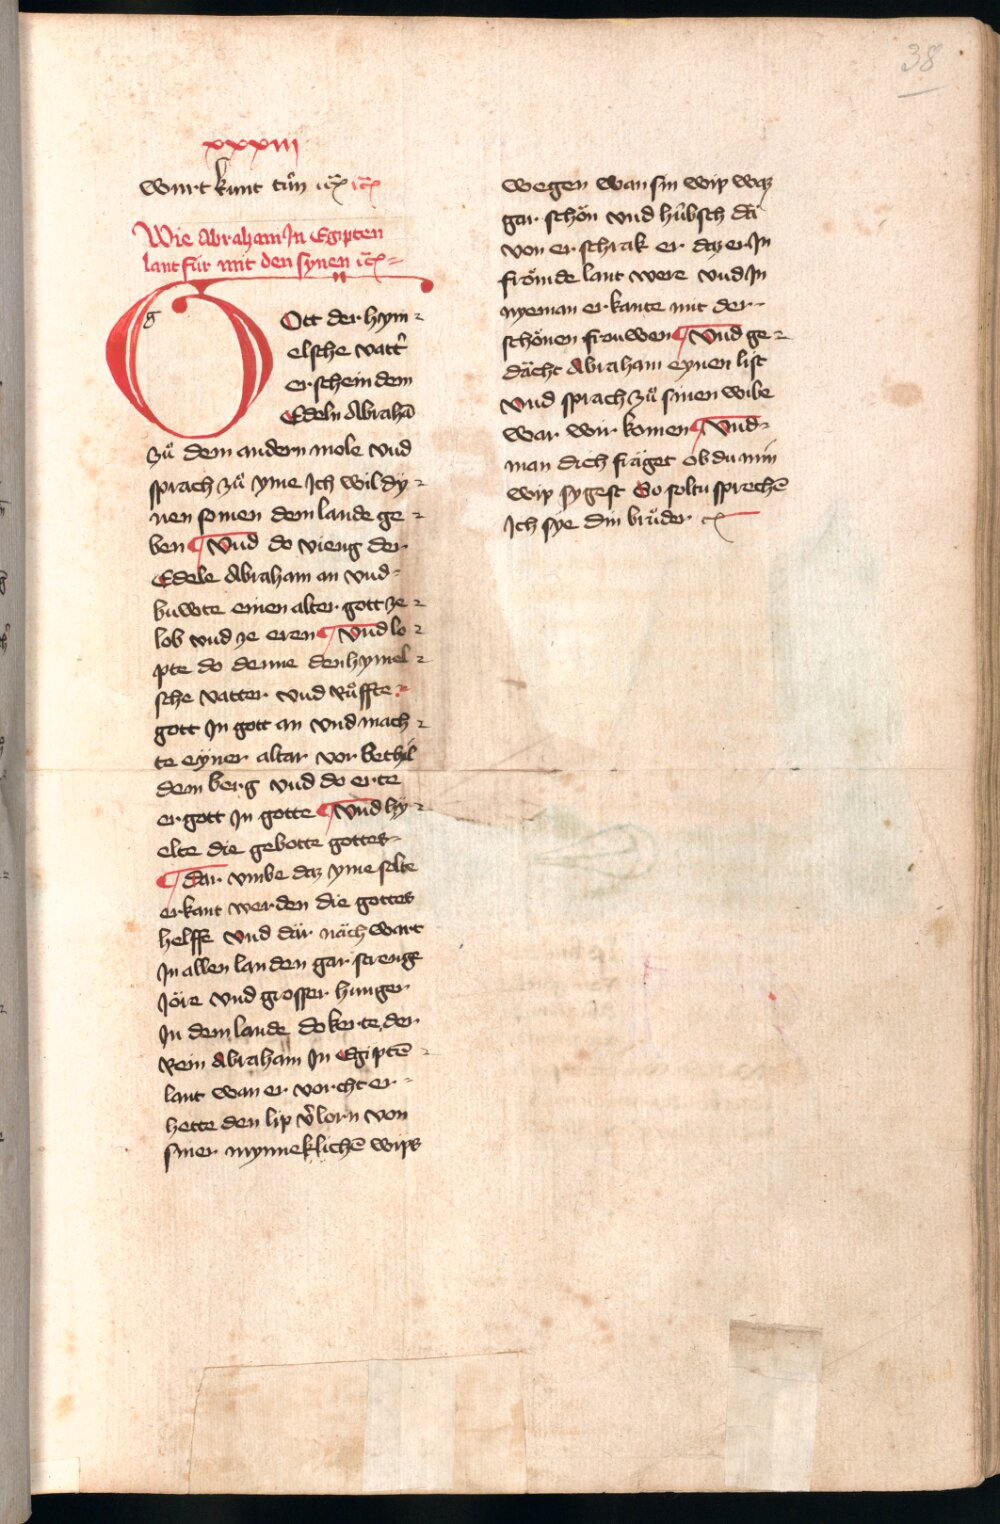 38
xxxiii
wurt kunt tůn ꝛc̄ ꝛc̄
Wie Abraham In Egipten
lant fůr mit den synen ꝛc̄
g
Ott der hym-
elsche vatt̉
erschein dem
Edeln Abrahā
zů dem andern mole vnd
sprach zů yme Ich wil dy-
nen somen dem lande ge-
ben ¶ Vnd do vieng der
Edele Abraham an vnd
buwte einen alter gott ze
lob vnd ze eren ¶ Vnd lo-
pte do denne den hymel-
sche vatter vnd růffte
gott In gott an vnd mach-
te eyner altar vor bethil
dem berg vnd do erte
er gott In gotte ¶ Vnd hy-
elte die gebotte gottes
¶ Dar vmbe daz yme solte
erkant werden die gottes
helffe Vnd dar näch wart
In allen landen gar strenge
Jöre vnd grosser hunger
In dem lande do kerte der
Rein Abraham In Egiptē
lant wan er vorcht er
hette den lip v̉lorn von
siner mynneklichē wips
wegen wan sin wip waz
gar schön vnd hübsch då
von er schrak er daz er In
frömde lant were vnd In
nyeman erkante mit der
schönen frouwen ¶ Vnd ge-
dächt Abraham eynen list
Vnd sprach zů sinen wibe
war wir komen ¶ Vnd
man dich fräget ob du min
wip sygest So soltu sprechē
Ich sye din brůder ꝛc̄